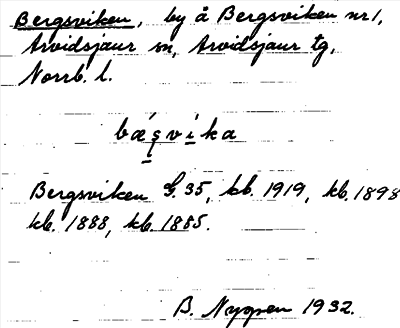 Bergsviken, by å Bergsviken nr 1,
Arvidsjaur sn, Arvidsjaur tg,
Norrb. l.
bæ̀șvika
Bergsviken G. 35, kb. 1919, kb. 1898
kb. 1888, kb. 1885.
B. Nygren 1932.